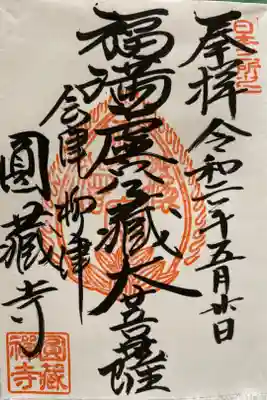 奉拝 令和二年五月廿日
福満虚空藏大菩薩
会津柳津
圓藏寺
圓藏禅寺